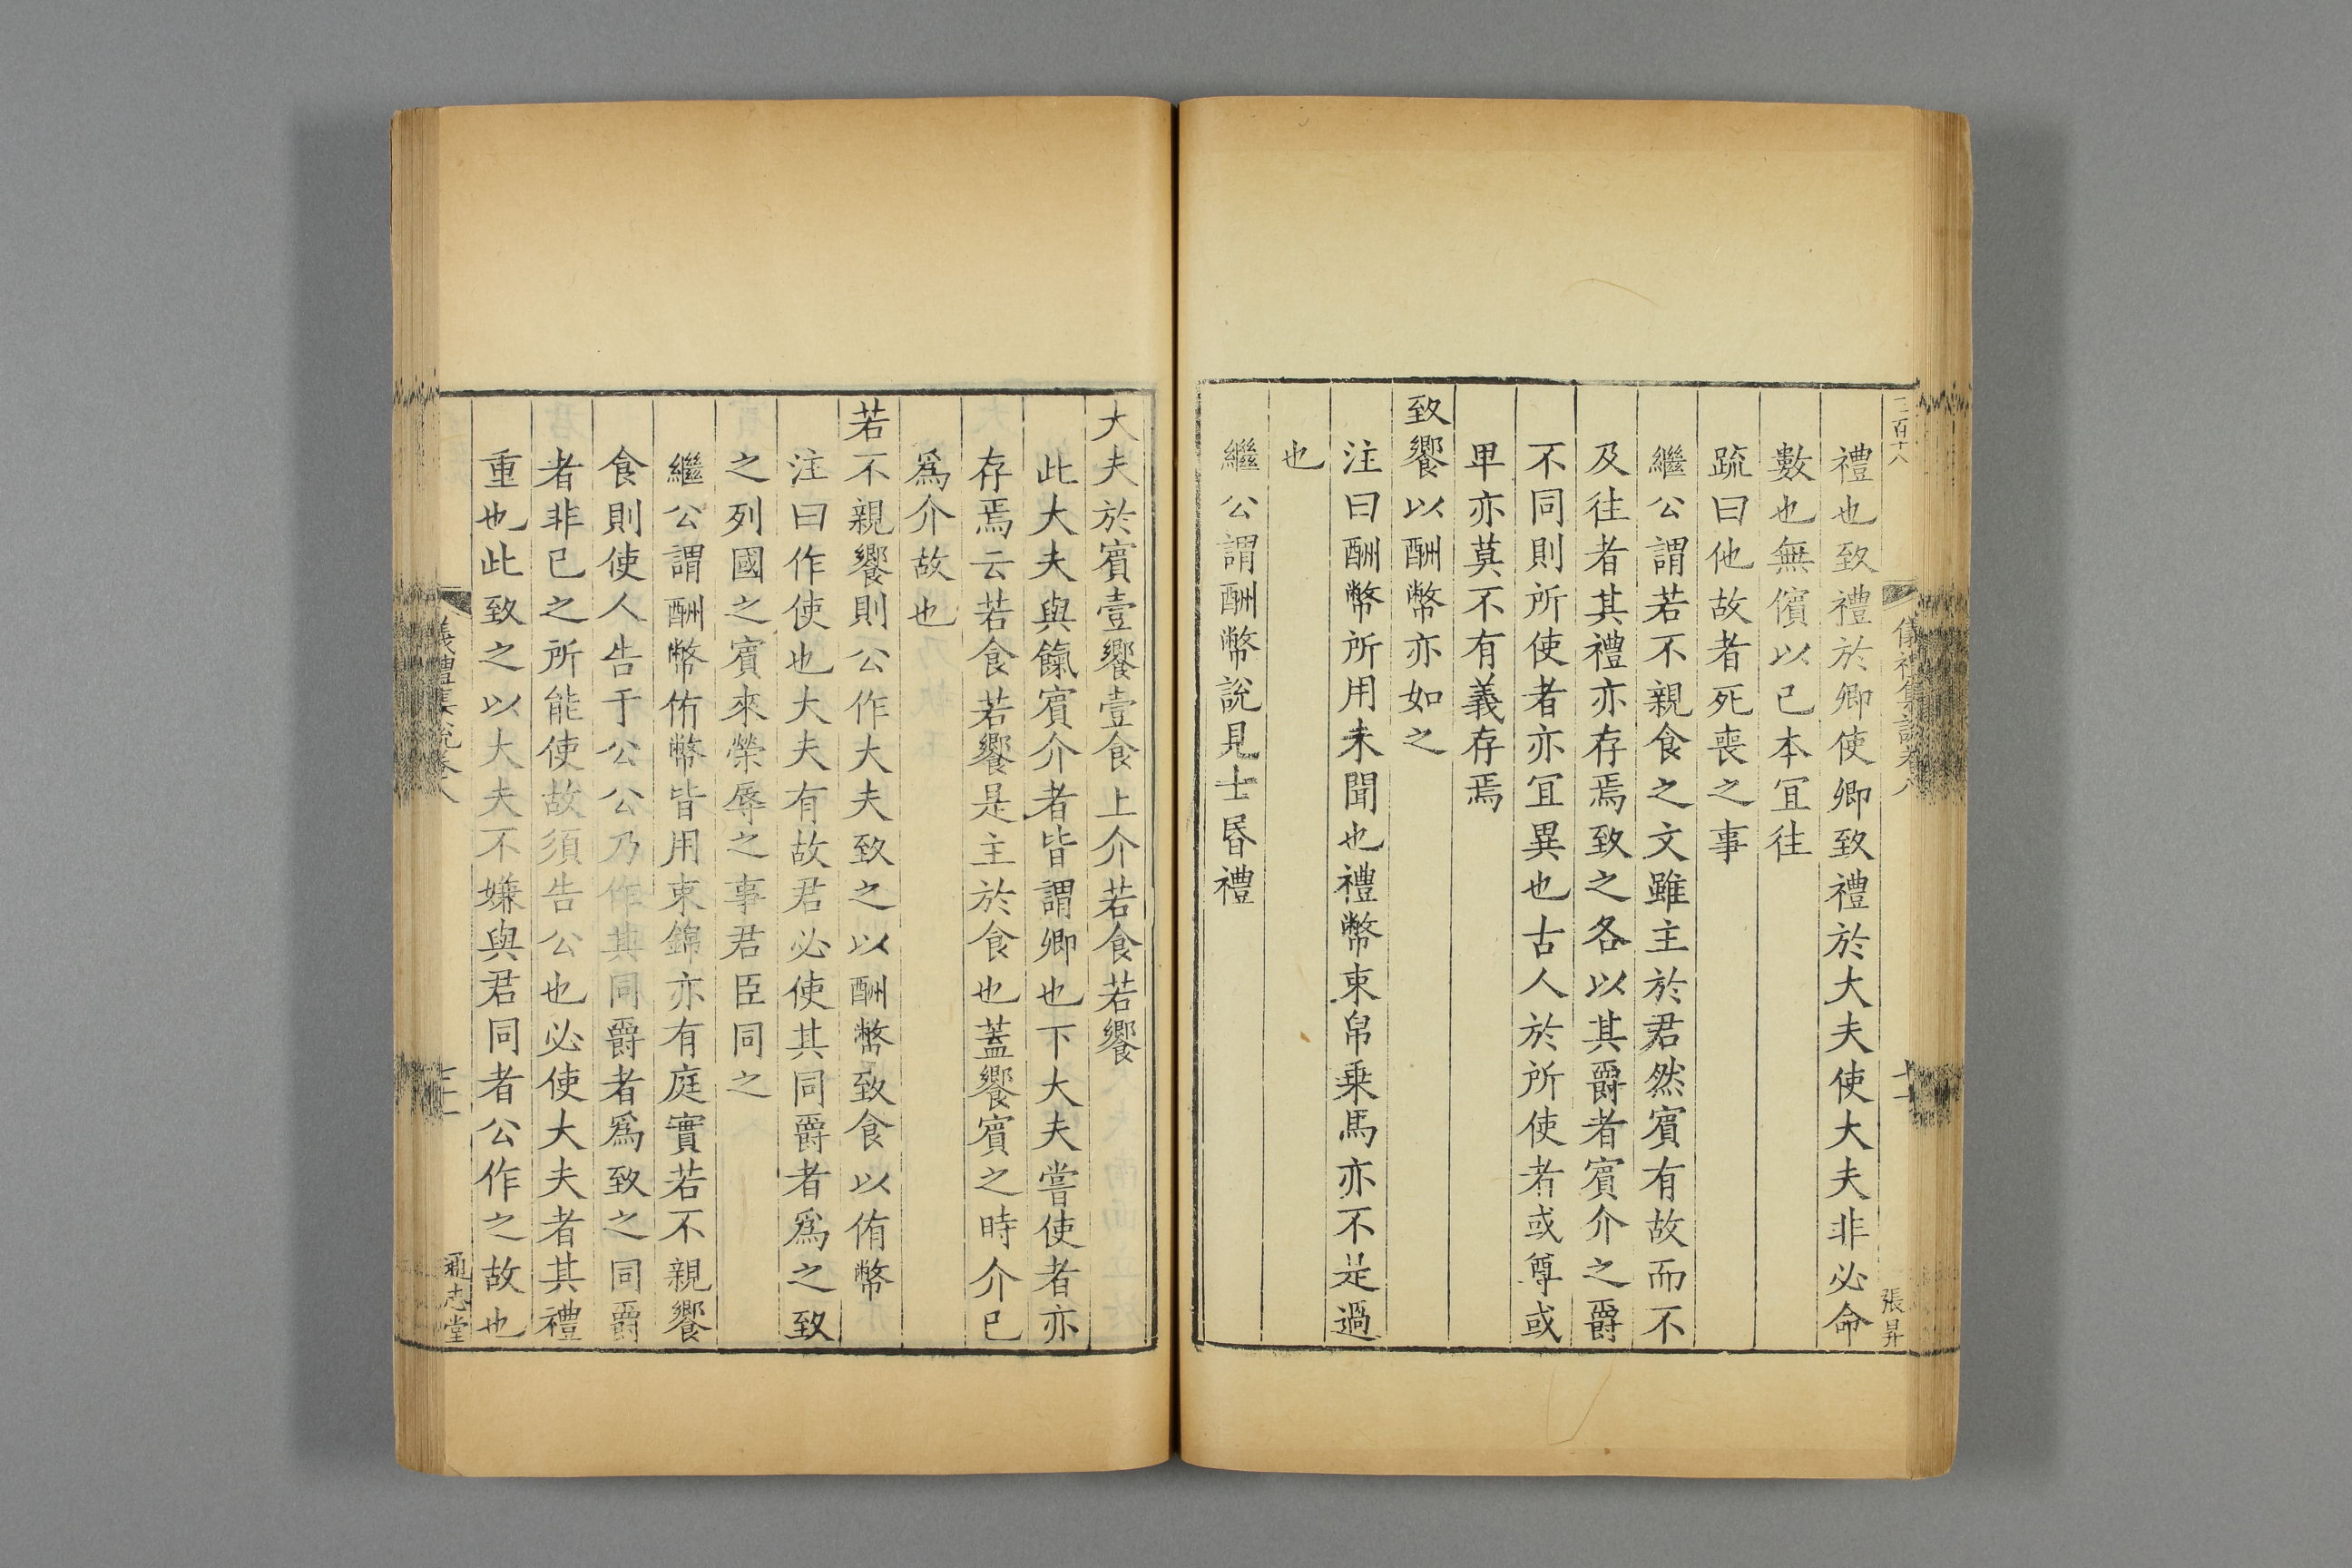 禮也致禮於卿使卿致禮於大夫使大夫非必命
數也無儐以已本宜往
疏曰他故者死喪之事
繼公謂若不親食之文雖主於君然賓有故而不
及往者其禮亦存焉致之各以其爵者賓介之爵
不同則所使者亦宜異也古人於所使者或尊或
卑亦莫不有義存焉
致饗以酬幣亦如之
注曰酬幣所用未聞也禮幣束帛乗馬亦不是過
也
繼公謂酬幣說見士昏禮
大夫於賓壹饗壹食上介若食若饗
此大夫與餼賓介者皆謂卿也下大夫嘗使者亦
存焉云若食若饗是主於食也蓋饗賓之時介已
爲介故也
若不親饗則公作大夫致之以酬幣致食以侑幣
注曰作使也大夫有故君必使其同爵者爲之致
之列國之賓來榮辱之事君臣同之
繼公謂酬幣侑幣皆用束錦亦有庭實若不親饗
食則使人告于公公乃作其同爵者爲致之同爵
者非已之所能使故須告公也必使大夫者其禮
重也此致之以大夫不嫌與君同者公作之故也
儀禮集說卷八
通志堂
張昇